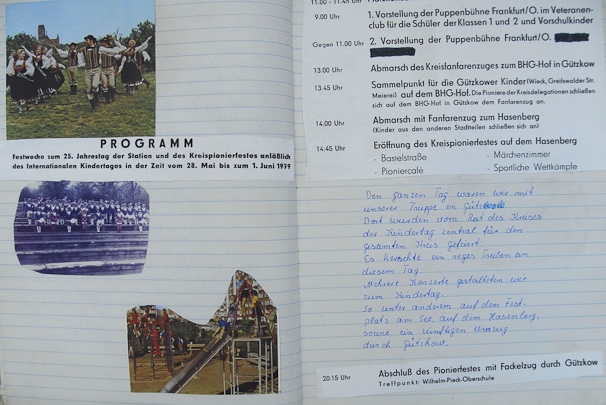 PROGRAMM
Festwoche zum 25. Jahrestag der Station und des Kreispionierfestes anläßlich
des Internationalen Kindertages in der Zeit vom 28. Mai bis zum 1. Juni 1979
11.00 - 11.45 Uhr
9.00 Uhr 1. Vorstellung der Puppenbühne Frankfurt/O. im Veteranen-
club für die Schüler der Klassen 1 und 2 und Vorschulkinder
Gegen 11.00 Uhr 2. Vorstellung der Puppenbühne Frankfurt/O.
13.00 Uhr Abmarsch des Kreisfanfarenzuges zum BHG-Hof in Gützkow
13.45 Uhr Sammelpunkt für die Gützkower Kinder (Wieck, Greifswalder Str.
Meierei) auf dem BHG-Hof. Die Pioniere der Kreisdelegationen schließen
sich auf dem BHG-Hof in Gützkow dem Fanfarenzug an.
14.00 Uhr Abmarsch mit Fanfarenzug zum Hasenberg
(Kinder aus den anderen Stadtteilen schließen sich an)
14.45 Uhr Eröffnung des Kreispionierfestes auf dem Hasenberg
· Bastelstraße · Märchenzimmer
· Pioniercafé · Sportliche Wettkämpfe
Den ganzen Tag waren wir mit
unserer Truppe in Gützkow.
Dort wurden vom Rat des Kreises
der Kindertag zentral für den
gesamten Kreis gefeiert.
Es herrschte ein reges Treiben an
diesem Tag.
Mehrere Konzerte gestalteten wir
zum Kindertag.
So unter anderem auf dem Fest-
platz am See, auf dem Hasenberg,
sowie ein zünftigen Umzug
durch Gützkow.
20.15 Uhr Abschluß des Pionierfestes mit Fackelzug durch Gützkow
Treffpunkt: Wilhelm-Pieck-Oberschule